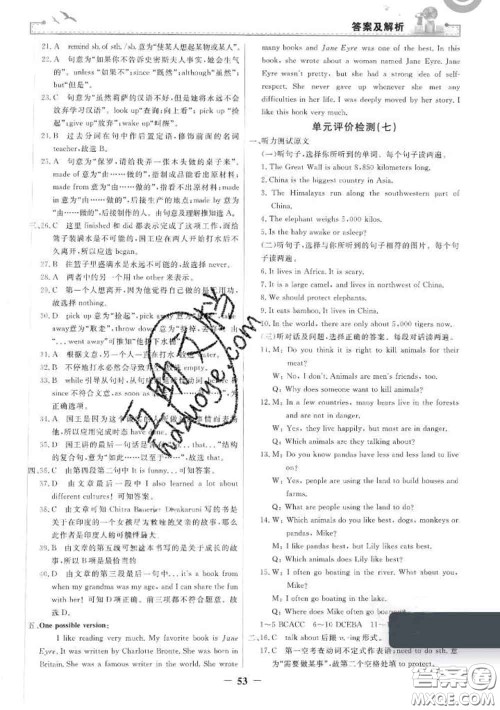 答案及解析
21. A remind sb. of sth. /sb. 意为“使某人想起某物或某人”。
22. A 句意为“如果你不告诉史密斯夫人事实,她会生气
的”。unless“如果不”;since“既然”;although“虽然”;
but“但是”。
23. C 句意为“虽然莉萨的汉语不好,但是她将永远不会
放弃学习汉语”。look up“查阅;向上看”;pick up“捡
起”;give up“放弃”;wake up“叫醒”。
24. D 过去分词在句中作后置定语,修饰前面的名词
teacher。
25. A 句意为“保罗,请给我弄一张木头做的桌子来”。
made of 意为“由……做的”,指制成品能看出原材料;
made from 意为“由……做的”,指看不出原材料;made
in 意为“由……做的”,后接生产的地点;made by 意为
“由……做的”,后接制作的人。由句意及理解推知选 A。
三、26. C 这里 finished 和 did 都表示完成了这项工作,而给
篮子装满水是不可能的,国王应在两人开始打水后不
久离开,所以应选 began。
27. B 在篮子里盛满水是永远不可能的,故选择 never。
28. A 两者中的另一个用 the other 来表示。
29. C 第一个人想离开,因为他觉得自己做的是无用功,
故选择 work。
30. D pick up 意为“拾起”,pick away
away 意为“取走”,throw down
“……went away”可推知
31. A 根据文意,另一个人一直在打水,故选 water。
32. B 不停地打水必然能
33. B while 引导从句时,从句动词
符合文意,
正确选项。
34. C 国王是因为这个
以应用完成时态 have done。
35. D 国王讲的最后一句话是
的复合句,意为“如此……以至于……”,故选 that。
四、36. C 由第四段第二句中 It is funny...可知答案。
37. D 由文章最后一段中 I also learned a lot about
different cultures! 可知答案。
38. C 由文章可知 Chitra Banerjee Divakaruni 写的书是
关于在印度的一个女孩尽力唤醒她父亲的故事,那么
此作者是印度人的可能性最大。
39. B 由文章的第五段可知这本书写的是关于成长的故
事,所以 B 项是最恰当的
40. D 由文章的第三段最后一句中...it's a book from
when my grandma was my age, and I can share the fun
with her! 可知 D 项正确。前三项都不符合题意。故选
D。
五、One possible version:
I like reading very much. My favorite book is Jane
Eyre. It was written by Charlotte Bronte. She was born in
Britain. She was a famous writer in the world. She wrote
many books and Jane Eyre was one of the best. In this
book, she wrote about a woman named Jane Eyre. Jane
Eyre wasn't pretty, but she had a strong idea of self-
respect. She never gave up whenever she met any
difficulties in her life. I was deeply moved by her story. I
like the book very much.
单元评价检测(七)
一、听力测试原文
(一)听句子,选择你所听到的单词。每个句子读两遍。
1. The Great Wall is about 8,850 kilometers long.
2. China is the biggest country in Asia.
3. The Himalayas run along the southwestern part of
China.
4. The elephant weighs 5,000 kilos.
5. Is the baby awake or asleep?
(二)听句子,选择与你所听到的句子相符的图片。每个句
子读两遍。
6. It lives in Africa. It is scary.
7. It is a large camel, and lives in northwest of China.
8. We should protect elephants.
9. It eats bamboo, It lives in China.
10. In the world, there are only about 5,000 tigers now.
(三)听对话及问题,选择正确的答案。每段对话读两遍。
11. M: Do you think it is right to kill animals for their
meat?
W: No, I don't. Animals are men's friends, too.
Q: Why does someone want to kill animals?
12. M: In a few countries, many bears are living in the
farm.
W: Yes, they live happily, but most are in danger.
Q: Which animals are they talking about?
13. M: Do you know pandas have less and less land to
live on?
W: Yes, people are using the land to build houses and
farms.
Q: What are people using the land to do?
14. W: Which animals do you like best, dogs, monkeys or
pandas, Mike?
M: I like pandas best, but Lily likes cats best.
Q: Which animals does Mike like best?
15. W: I often go boating in the river. What about you,
Mike?
M: I often go boating in the ocean.
Q: Where does Mike often go boating?
1~5 BCACC 6~10 DCEBA 11~15
二、16. C talk about 后跟 v.-ing 形式。
17. C 第一空考查动词不定式作表语;need to do sth. 意
为“需要做某事”,故第二个空格处填 to protect。
53